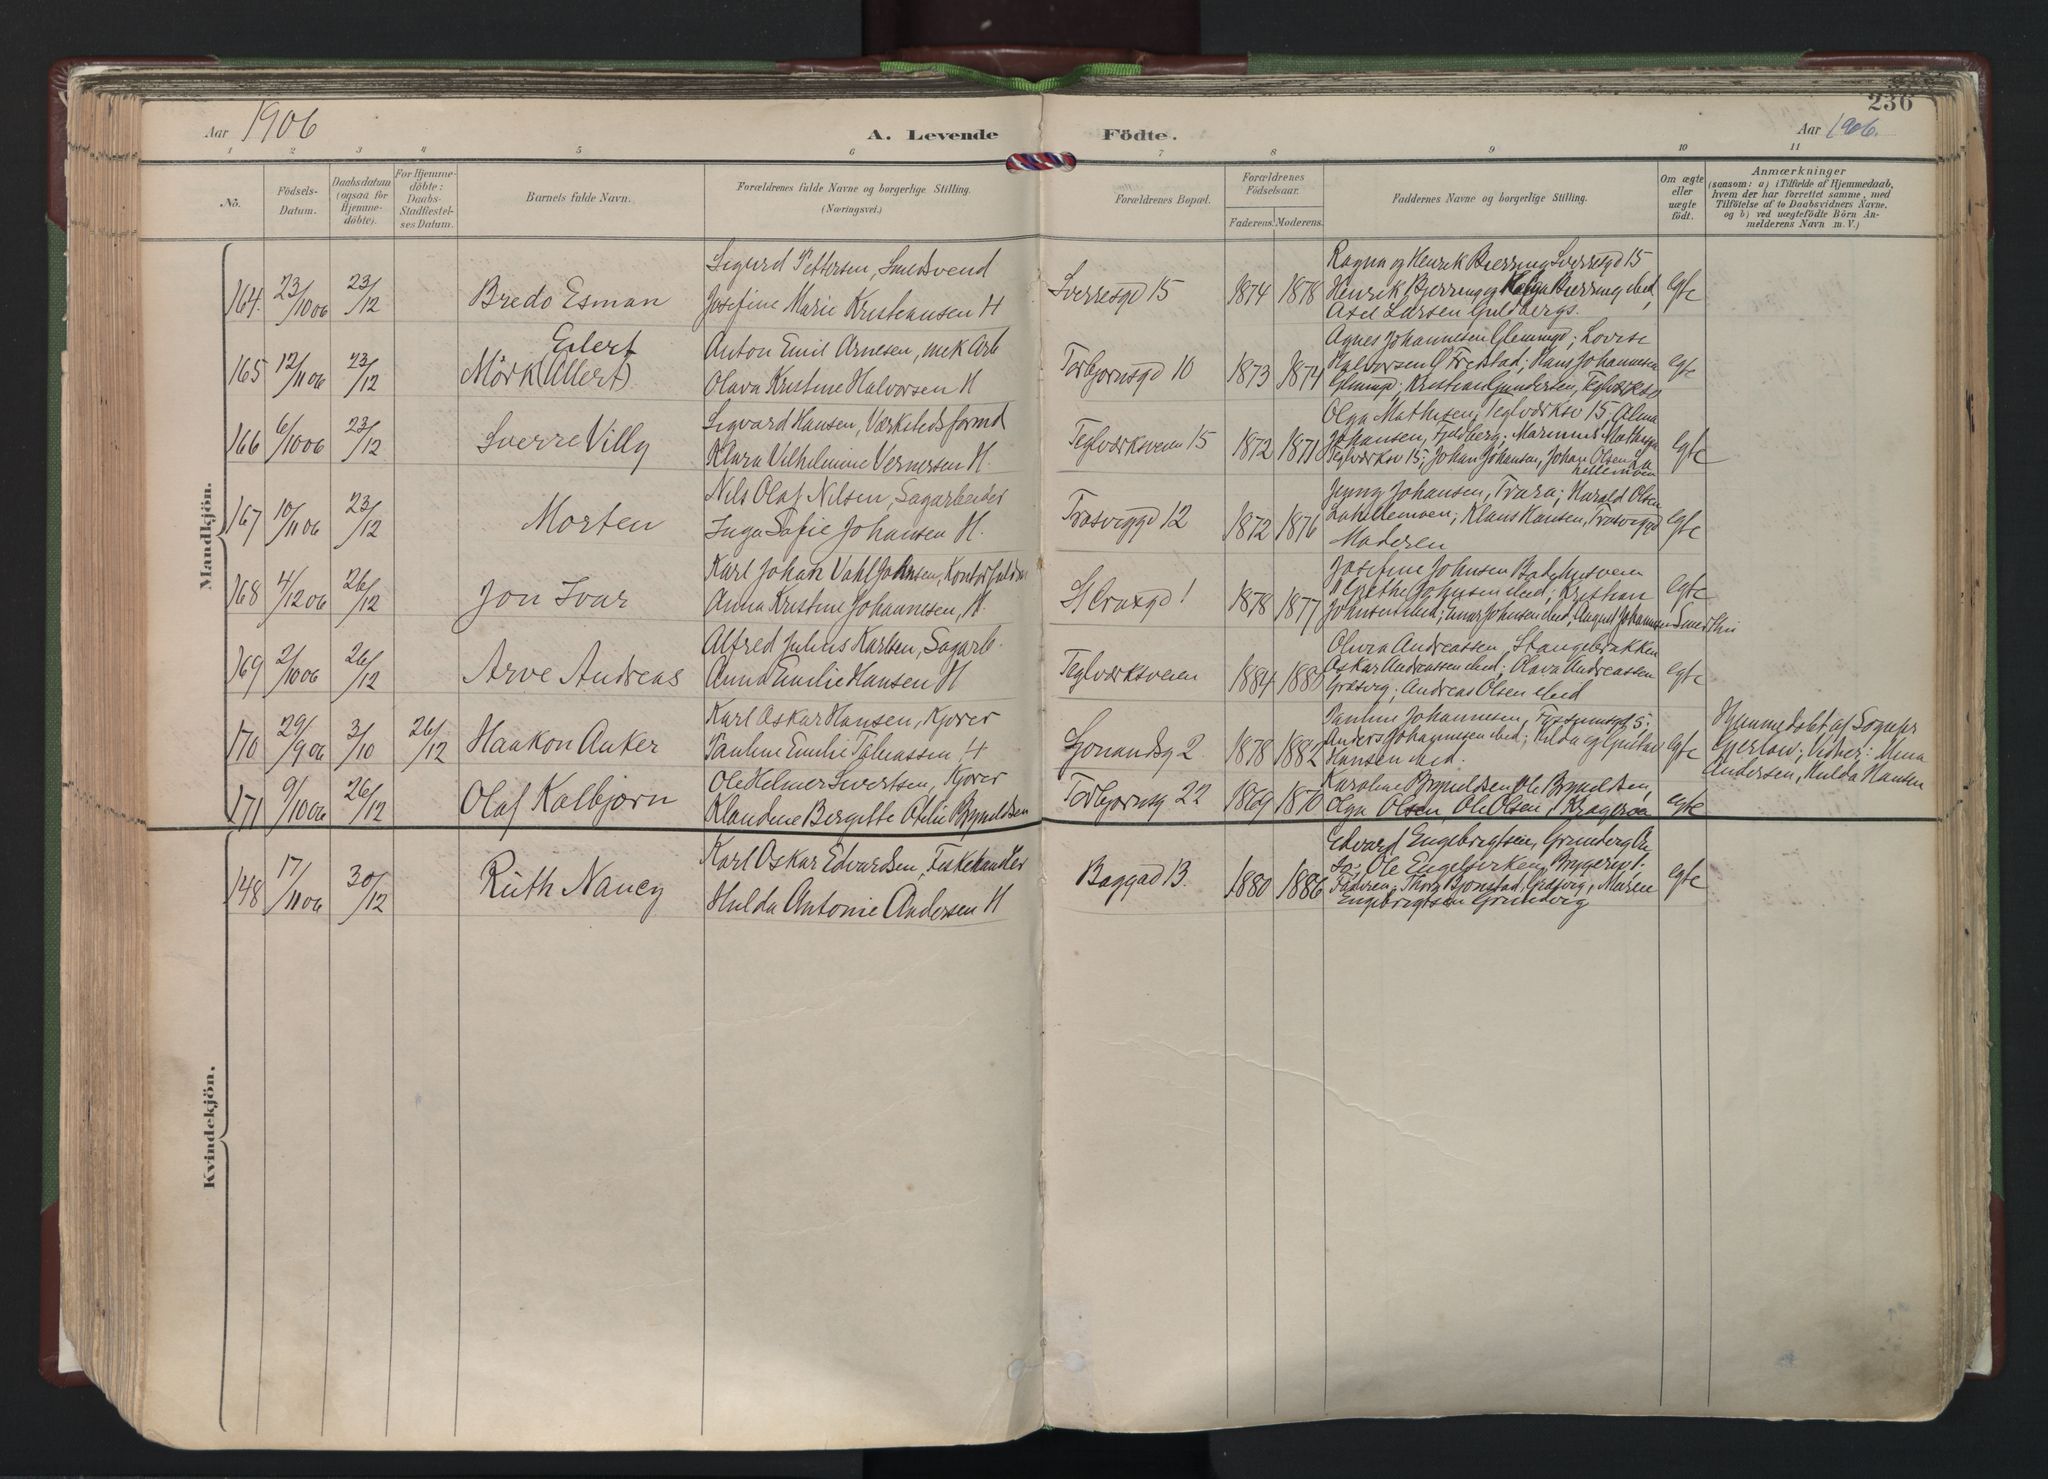 236
Aar 1906
A. Levende Födte.
Aar 1906.
1 2 3 4 5 6 7 8 9 10 11
No.
Födsels-
Datum.
Daabsdatum
(ogsaa for
Hjemme-
döbte).
For Hjemme-
döbte:
Daabs-
Stadfæstel-
ses Datum.
Barnets fulde Navn.
Forældrenes fulde Navne og borgerlige Stilling.
(Næringsvei.)
Forældrenes Bopæl.
Forældrenes
Födselsaar.
Faderens. Moderens.
Faddernes Navne og borgerlige Stilling.
Om ægte
eller
uægte
födt.
Anmærkninger
(saasom: a) i Tilfælde af Hjemmedaab,
hvem der har forrettet samme, med
Tilföielse af to Daabsvidners Navne,
og b) ved uægtefödte Börn An-
melderens Navn m. V.)
Mandkjön.
164. 23/10 06 23/12 Bredo Esman
Sigurd Pettersen, Smedsvend
Josefine Marie Kristiansen H
Sverresgd 15 1874 1878
Ragna og Henrik Bjerring Sverresgd 15
Henrik Bjerring og Bjerring ibid,
Axel Larsen Guldbergs.
Egte
165 12/11 06 23/12 Eilert
Mörk (Allert)
Anton Emil Arnesen, mek Arb
Olava Kristine Halvorsen H
Torbjornsgd 10 1873 1874
Agnes Johannesen Glemmgd; Lovise
Halvorsen Fredstad; Hans Johannesen
Glemmgd; Kristian Gundersen, Teglverksv
Egte
166 6/10 06 23/12 Sverre Villy
Sigvard Hansen, Værkstedsformd
Klara Vilhelmine Vernersen H.
Teglværksveien 15 1872 1871
Olga Mathisen, Teglværksv 15; Alma
Johansen, Fjeldberg; Marinus Mathisen
Teglværksv 15; Johan Johansen, Johan Olsen La
hellemoen
Egte
167 10/11 06 23/12 Morten
Nils Olaf Nilsen, Sagarbeider
Inga Sofie Johansen H.
Trosviggd 12 1872 1876
Jenny Johansen, Trara; Harald Olsen
Lahellemoen; Klaus Hansen, Trosviggd
Moderen
Egte
168 4/12 06 26/12 Jon Ivar
Karl Johan Vahl Johnsen, Kontorfuldm
Anna Kristine Johannesen, H.
St Croixgd 1 1878 1877
Josefine Johnsen Badehusveien
Johnsen ibid; Kristian
Johnsen ibid; Einar Johnsen ibid, August Johannesen
Egte
169 2/10 06 26/12 Arve Andreas
Alfred Julius Karlsen, Sagarb.
Anna Emilie Hansen H
Teglværksveien 1884 1880
Olivia Andreassen, Stangebrækken
Oskar Andreassen ibid; Olava Andreassen
Græsvig; Andreas Olsen ibid
Egte
170 29/9 06 3/10 26/12 Haakon Anker
Karl Oskar Hansen, Kjorer
Pauline Emilie H
2 1878 1882
Pauline Johannesen, Fossumsgd 5;
Anders Johannesen ibid; Hilda og Gustav
Hansen ibid.
Egte
Hjemmedobt af Sognepr
Gjerlow; Vidner: Mina
Andersen, Hulda Hansen
171 9/10 06 26/12 Olaf Kolbjorn
Ole Helmer Sivertsen, Kjorer
Klaudine Birgitte Otilie Brynildsen
Torbjornsg 22 1869 1870
Karoline Brynildsen, Ole Brynildsen,
Olga Olsen, Ole Olsen, Krageroen
egte
Kvindekjön.
148 17/11 06 30/12 Ruth Nancy
Karl Oskar Edvardsen, Fiskehandler
Hulda Antonie Andersen H
Baggad 13. 1880 1886
Edvard Engebrigtsen,
Ole
Faderen, Bjonstad, Græsvig, Maren
Engebrigtsen Grundvig
Egte